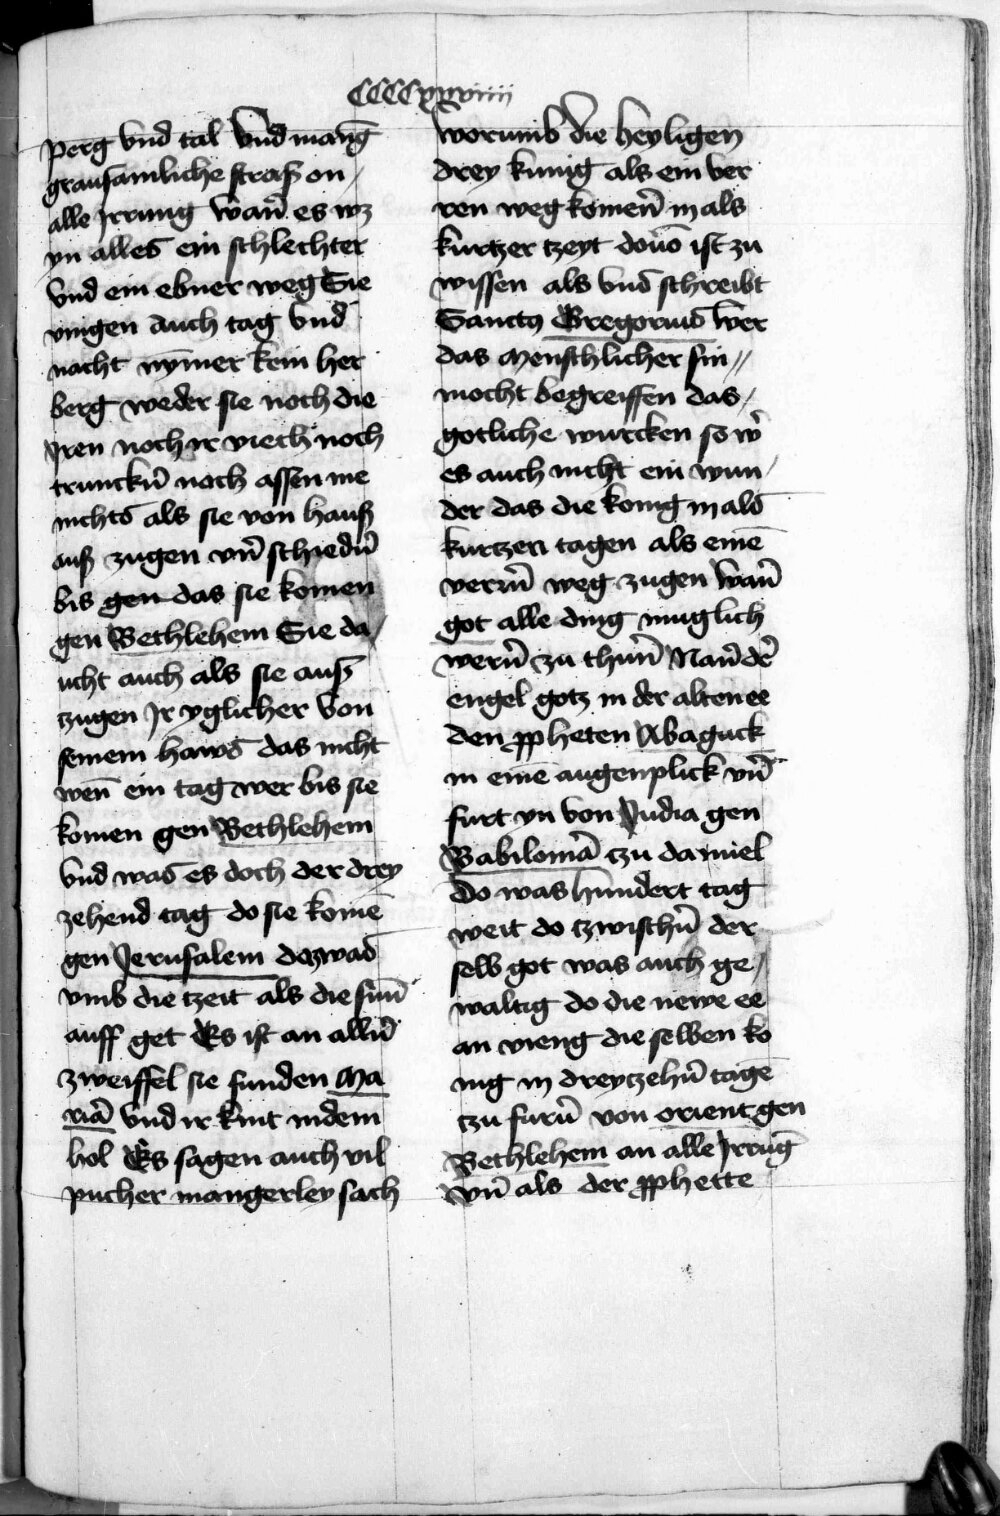 CCCCxxviiii
perg vnd tal vnd manḡ
grausamliche straß on /
alle Jrrung wan̄ es wz
yn alles ein schlechter
vnd ein ebner weg Sie
viengen auch tag vnd
nacht nymer kein her
berg weder sie noch die
Jren noch ir viech noch
trunckn̄ noch assen nie
nichts als sie von hauß
auß zugen vn̄ schiedn̄
bis gen das sie komen
gen Bethlehem Sie da /
ucht auch als sie auß
zugen Jr yglicher von
seinem haws das nicht
wen̄ ein tag wer bis sie
komen gen Bethlehem
vnd was es doch der drey
zehend tag do sie komē
gen Jerusalem dozwas
vmb die tzeit als die sun̄
auff get Es ist an alln̄
zweiffel sie funden Ma
riā vnd ir kint in dem
hol Es sagen auch vil
pucher mangerley sach
worumb die heyligen
drey kunig als ein ver
ren weg komen̄ in als
kurtzer tzeyt douō ist zu
wissen als vns schreibt
Sanctus Gregorius wer
das menschlicher sin //
mocht begreiffen das /
gotliche wurcken so w̄
es auch nicht ein wun /
der das die konig in als
kurtzen tagen als einē
verrn̄ weg zugen wan̄
got alle ding muglich
wern̄ zu thun̄ Nam̄ dē
engel gotz in der alten ee
den ppheten Abaguck
in einē augenplick vn̄
furt yn von Judia gen
Babilomā tzu daniel
Do was hundert tag
weit do tzwischn̄ der
selb got was auch ge /
waltig do die newe ee
an vieng die selben ko
nig in dreytzehn̄ tagē
tzu furn̄ von orient gen
Bethlehem an alle Jrrūg
vn̄ als der pphette